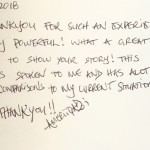 2018
THANKYOU FOR SUCH AN EXPERIE
Y POWERFUL! WHAT A GREAT
TO SHOW YOUR STORY! THIS
S SPOKEN TO ME AND HAS ALOT
COMPARISONS TO MY CURRENT SITUATION
THANKYOU!!